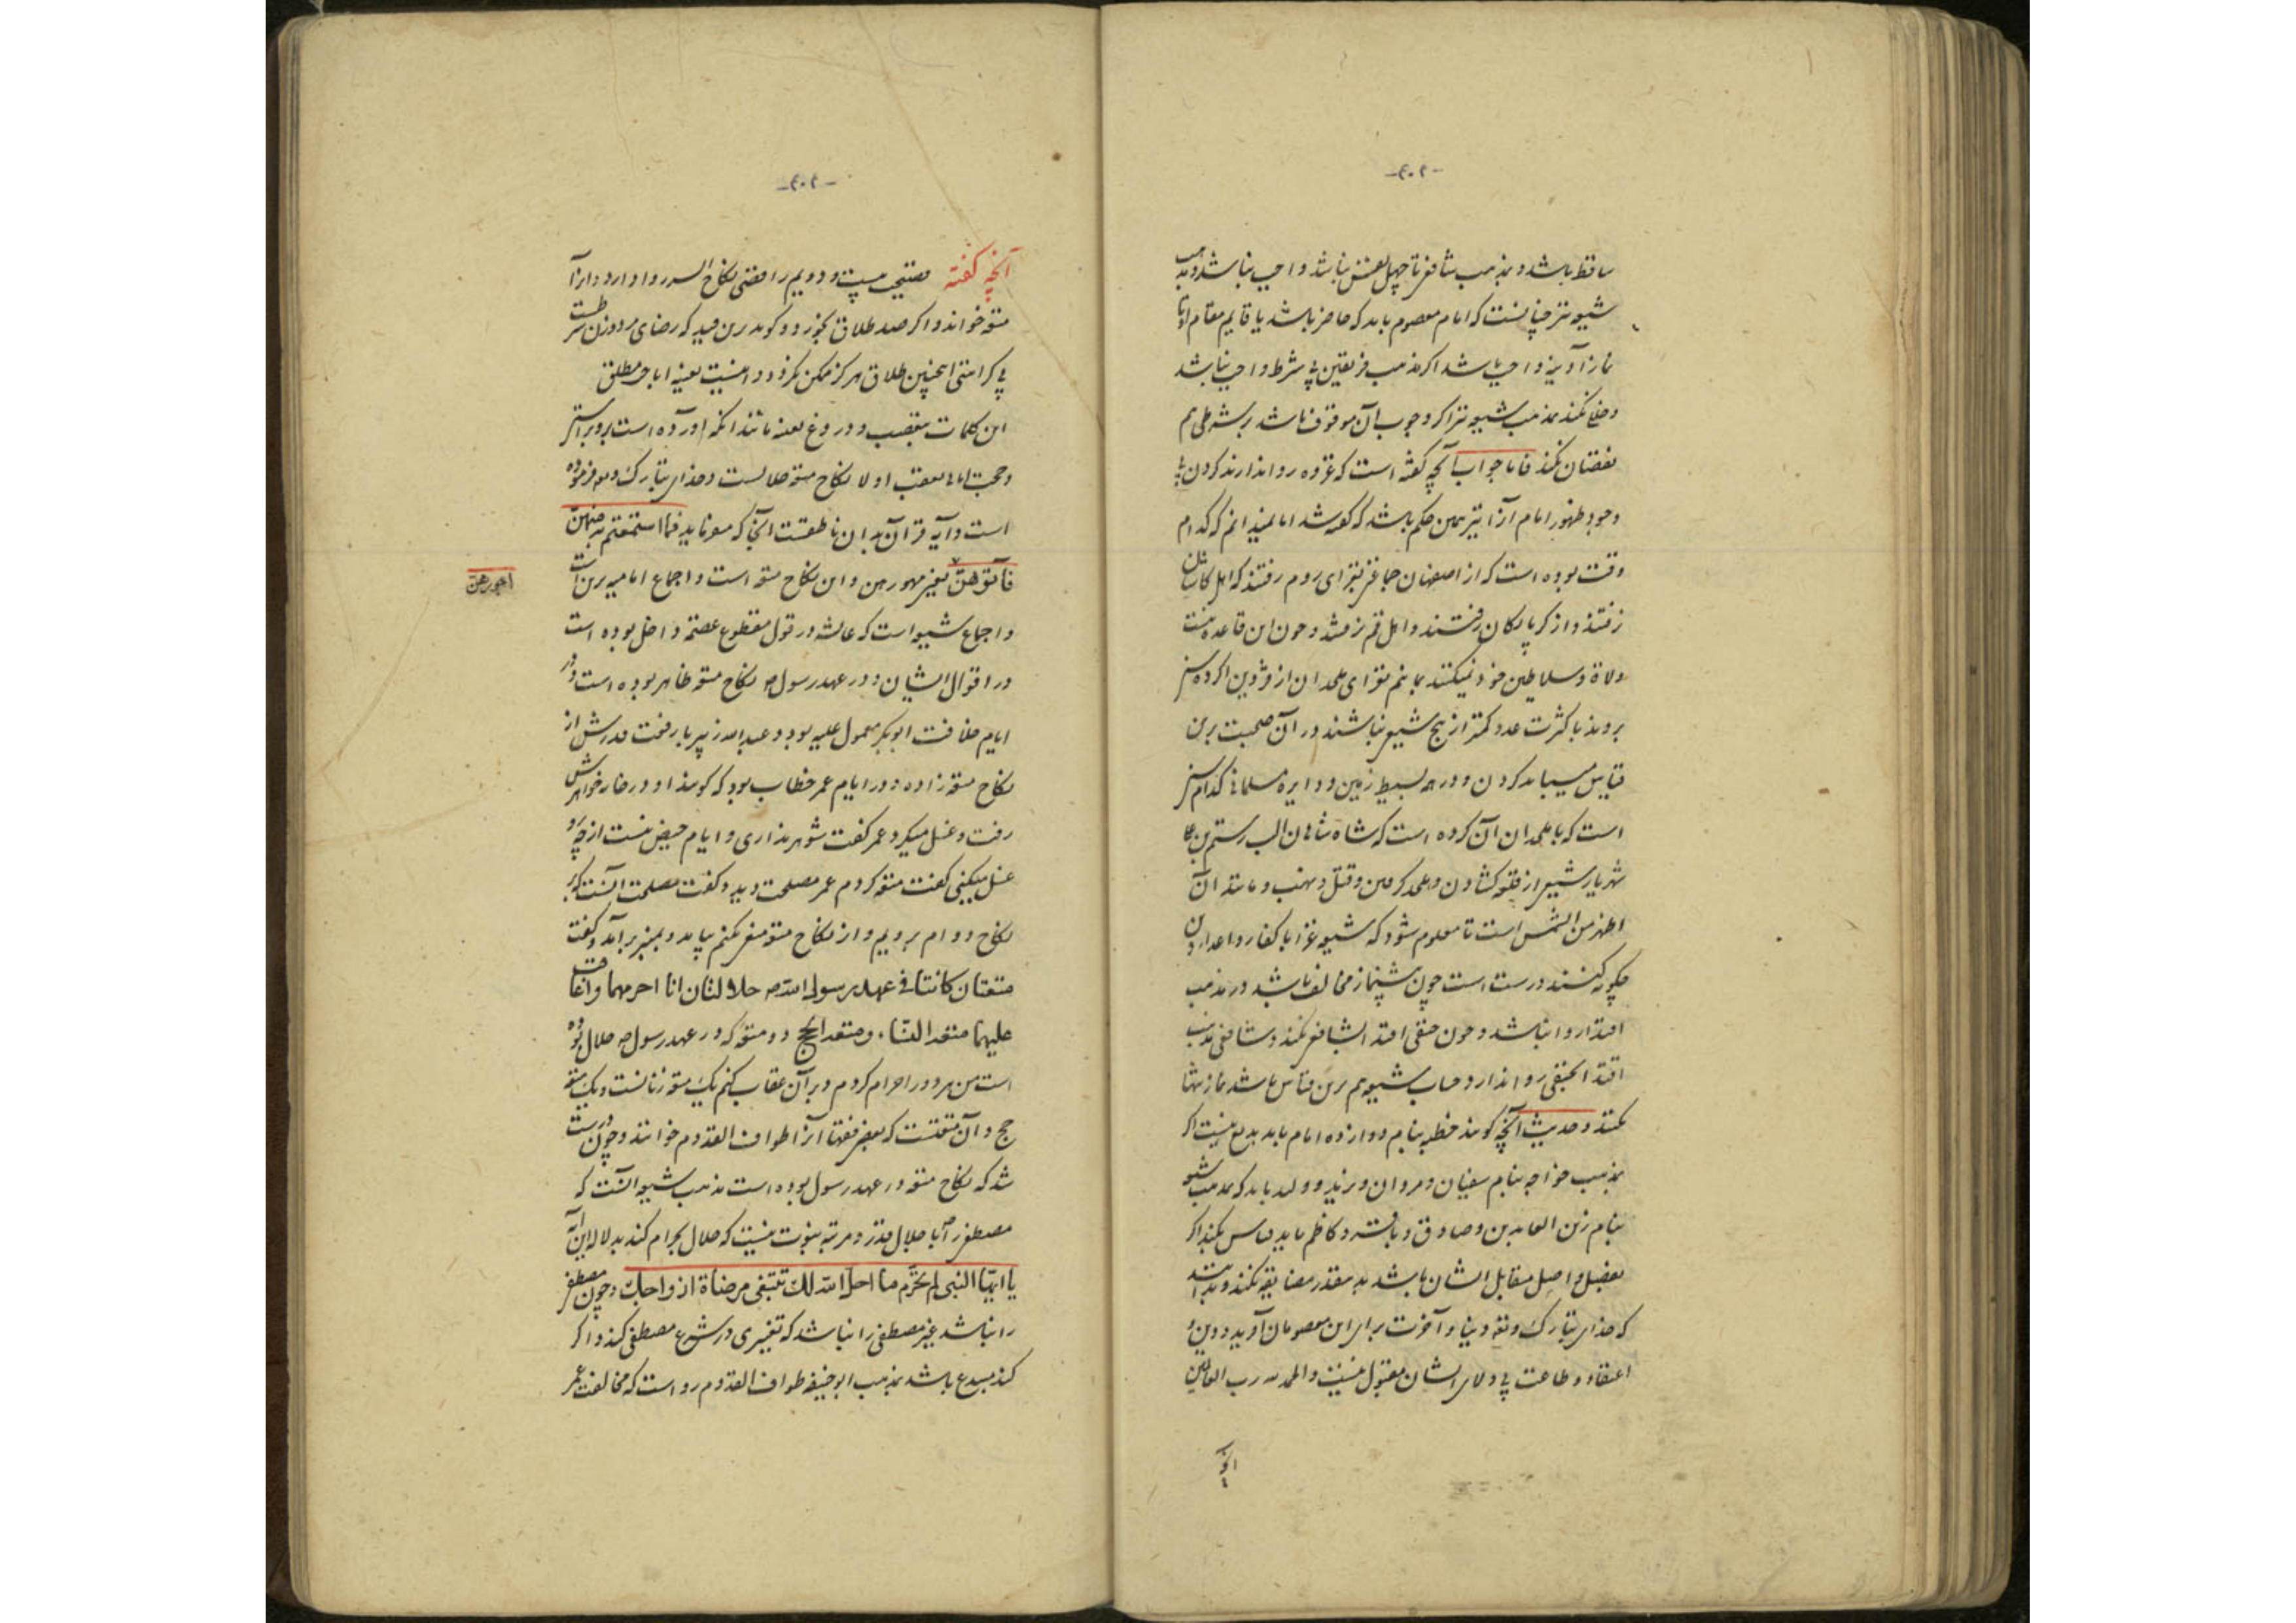 -۴۰۲-
ساقط باشد و بمذهب شافعی تا چهل نفس نباشند واجب نباشد و بمذهب
شیعه نیز چنانست که امام معصوم باید که حاضر باشد یا قایم مقام او تا
نماز آدینه واجب باشد اگر مذهب فریقین بی شرط واجب نباشد
و خلل نکند بمذهب شیعه نیز اگر وجوب آن موقوف باشد بر شرطی هم
نقصان نکند فاما جواب آنچه گفته است که غزوه روا ندارند کردن بی
وجود ظهور امام آنرا نیز همین حکم باشد که گفته شد اما نمیدانم که کدام
وقت بوده است که از اصفهان جماعتی بغزای روم رفتند که اهل کاشان
نرفتند و از کرپایکان رفتند و اهل قم نرفتند و چون این قاعده نیست
ولاة و سلاطین خود نمیکنند بماندیم بغزای ملحدان از قزوین اگر ده سنی
بروند با کثرت عدد کمتر از پنج شیعی نباشند در آن صحبت برین
قیاس میباید کردن و در همه بسیط زمین و دایره مسلمانی کدام سنی
است که با ملحدان آن کرده است که شاه شاهان الب رستم بن علی
شهریار شیعی از قلعه گشادن و ملحد گرفتن و قتل و نهب و مانند آن
اظهر من الشمس است تا معلوم شود که شیعه غزا با کفار و اعداء دین
چگونه کنند درست است چون پیشنماز مخالف باشد در مذهب
اقتدا روا نباشد و چون حنفی اقتدا بشافعی نکند و شافعی مذهب
اقتدا بحنفی روا ندارد حساب شیعه هم برین قیاس باشد نماز تنها
بکنند و حدیث آنچه گویند خطبه بنام دوازده امام باید بدیع نیست اگر
بمذهب خواجه بنام سفیان و مروان و یزید و ولید باید که بمذهب شیعه
بنام زین العابدین و صادق و باقر و کاظم باید قیاس بکند اگر
بفضل و اصل مقابل ایشان باشد بدینقدر مضایقه نکند و بداند
که خدای تبارک و تعالی دنیا و آخرت برای این معصومان آفرید و دین و
اعتقاد و طاعت بی ولای ایشان مقبول نیست و الحمد لله رب العالمین
آنچه
-۴۰۳-
آنچه گفته فضیحت بیست و دویم رافضی نکاح السر روا دارد و آنرا
متعه خواند و اگر صد طلاق بخورد و گوید برین قید که رضای مرد و زن شرطست
بی کراهتی اینچنین طلاق هرگز ممکن نگردد و اینست بعینه اباحت مطلق
این کلمات بتعصب و دروغ بعینه مانند آنکه آورده است برو برابر
و حجت اما بمعقب اولا نکاح متعه حلالست و خدای تبارک و تعالی فرموده
است و آیه قرآن بدان ناطقست آنجا که میفرماید فما استمتعتم به منهن
فآتوهنّ یعنی مهورهن و این نکاح متعه است و اجماع امامیه برین است
اجورهن
و اجماع شیعه است که عایشه در قول مقطوع عصمة داخل بوده است
در اقوال ایشان و در عهد رسول ص نکاح متعه ظاهر بوده است و در
ایام خلافت ابوبکر معمول علیه بود و عبدالله زبیر بارفعت قدرش از
نکاح متعه زاده و در ایام عمر خطاب بود که گویند او در خانه خواهرش
رفت و غسل میکرد عمر گفت شوهر نداری و ایام حیض نیست از چه رو
غسل میکنی گفت متعه کردم عمر مصلحت دید و گفت مصلحت آنست که بر
نکاح دوام برویم و از نکاح متعه منع بکنم بیامد و بمنبر برآمد و گفت
متعتان کانتا فی عهد رسول الله ص حلالتان انا احرمهما و اعاقب
علیهما متعة النساء و متعة الحج دو متعه که در عهد رسول ص حلال بوده
است من هر دو را حرام کردم و بر آن عقاب کنم یک متعه زنانست و یک متعه
حج و آن متعتست که بعضی فقها آنرا طواف القدوم خوانند و چون درست
شد که نکاح متعه در عهد رسول بوده است مذهب شیعه آنست که
مصطفی را ص با جلال قدر و مرتبه نبوت نیست که حلال حرام کند بدلاله این آیه
یا ایها النبی لم تحرّم ما احل الله لک تبتغی مرضاة ازواجک و چون مصطفی
را نباشد غیر مصطفی را نباشد که تغییری در شرع مصطفی کند و اگر
کند مبدع باشد بمذهب ابوحنیفه طواف القدوم رواست که مخالفت عمر